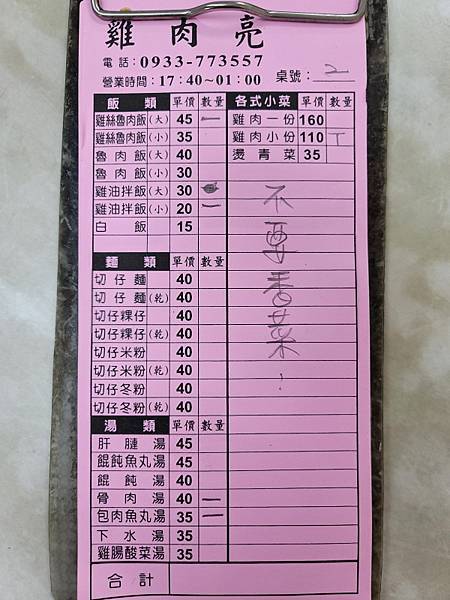 雞肉亮
電話:0933-773557
營業時間:17:40~01:00 桌號: 2
飯類 單價 數量 各式小菜 單價 數量
雞絲魯肉飯(大) 45 一 雞肉一份 160
雞絲魯肉飯(小) 35 雞肉小份 110 T
魯肉飯(大) 40 燙青菜 35
魯肉飯(小) 30
雞油拌飯(大) 30
雞油拌飯(小) 20 一
白飯 15
不要香菜!
麵類 單價 數量
切仔麵 40
切仔麵(乾) 40
切仔粿仔 40
切仔粿仔(乾) 40
切仔米粉 40
切仔米粉(乾) 40
切仔冬粉 40
切仔冬粉(乾) 40
湯類 單價 數量
肝腱湯 45
餛飩魚丸湯 45
餛飩湯 40
骨肉湯 40 一
包肉魚丸湯 35 一
下水湯 35
雞腸酸菜湯 35
合計